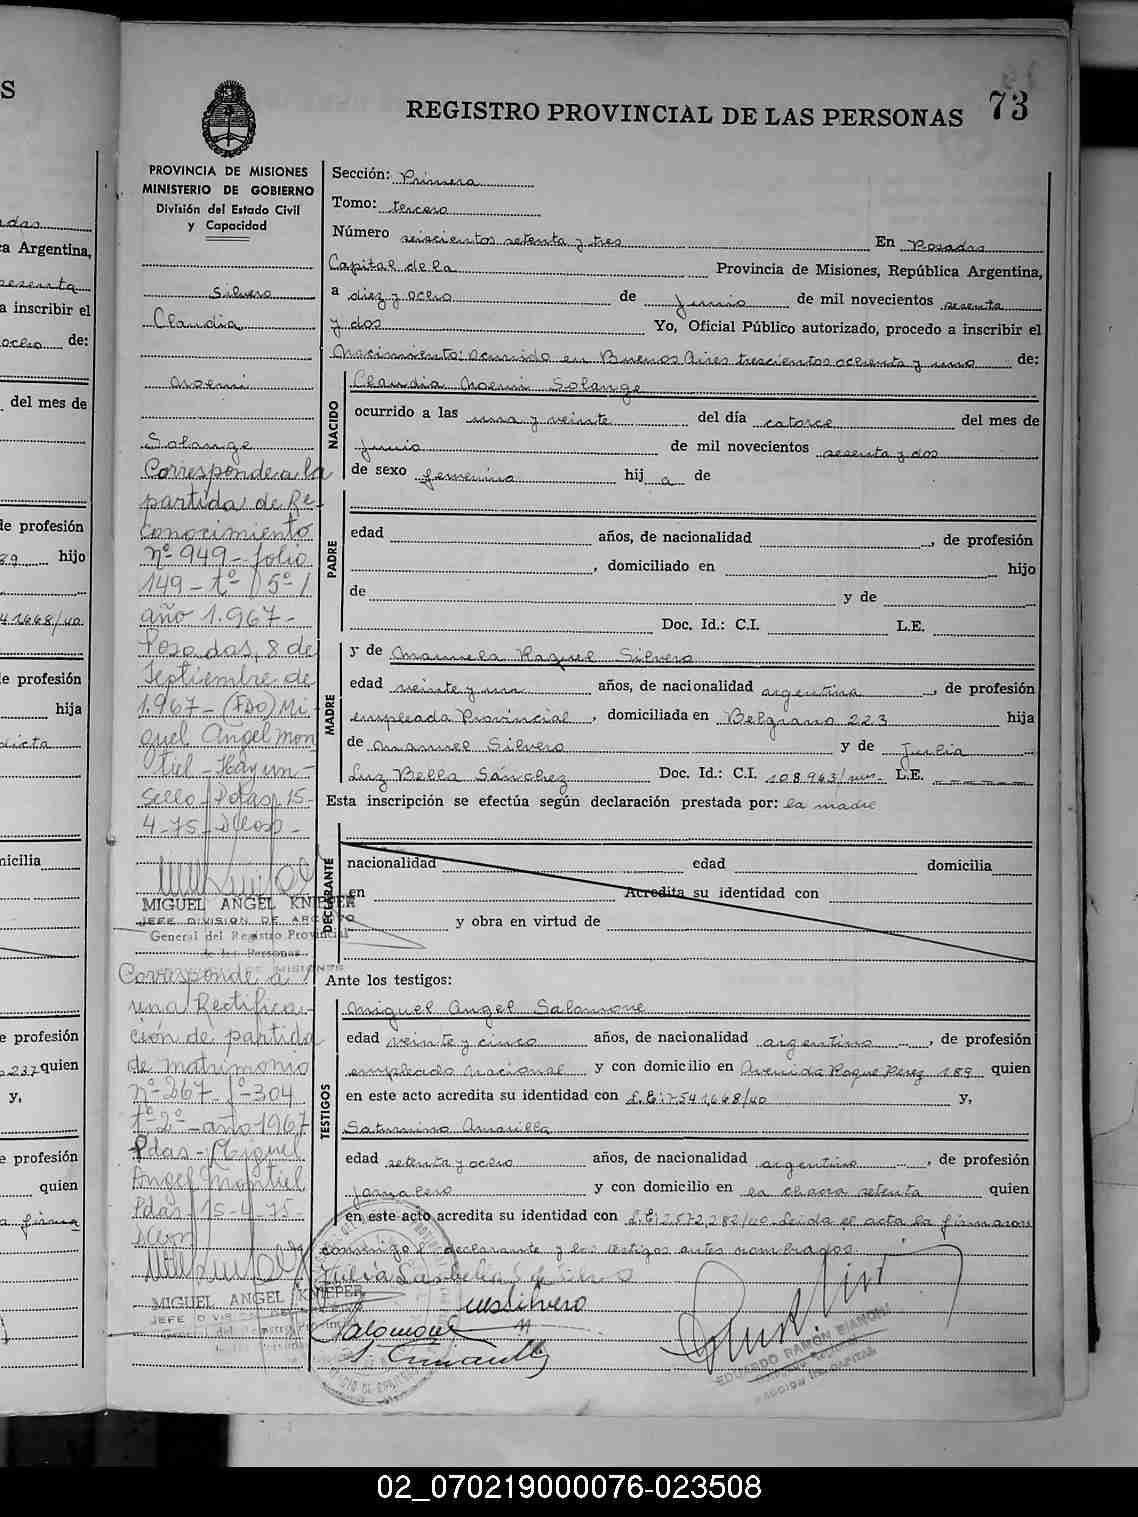 REGISTRO PROVINCIAL DE LAS PERSONAS 73
PROVINCIA DE MISIONES
MINISTERIO DE GOBIERNO
División del Estado Civil
y Capacidad
Silvero
Claudia
Noemi
Solange
Corresponde a la
partida de Re-
conocimiento
nº 949 - folio
149 - tº (5º)
año 1.967 -
Posadas, 8 de
Septiembre de
1.967 - (FDO) Mi-
guel Angel Mon
tiel - Hay un -
Sello - Pdas, 15-
4-75-
MIGUEL ANGEL KNIEPER
JEFE DIVISION DE ARCHIVO
General del Registro Provincial
de las Personas
MISIONES
Corresponde a
una Rectifica-
ción de partida
de matrimonio
nº 267 - fº 304
tº 2º - año 1967
Pdas - Miguel
Angel Montiel
Pdas - 15-4-75-
MIGUEL ANGEL KNIEPER
JEFE DIVISION DE
General del Registro Provincial
Sección: Primera
Tomo: tercero
Número seiscientos setenta y tres En Posadas
Capital de la Provincia de Misiones, República Argentina,
a diez y ocho de Junio de mil novecientos sesenta
y dos Yo, Oficial Público autorizado, procedo a inscribir el
Nacimiento: Ocurrido en Buenos Aires trescientos ochenta y uno de:
NACIDO
Claudia Noemi Solange
ocurrido a las una y veinte del día catorce del mes de
Junio de mil novecientos sesenta y dos
de sexo femenino hij a de
PADRE
edad años, de nacionalidad , de profesión
, domiciliado en hijo
de y de
Doc. Id.: C.I. L.E.
MADRE
y de Manuela Raquel Silvero
edad veinte y un años, de nacionalidad argentina , de profesión
empleada Provincial , domiciliada en Belgrano 223 hija
de Manuel Silvero y de Julia
Luz Bella Sánchez Doc. Id.: C.I. 108.963/mis. L.E.
Esta inscripción se efectúa según declaración prestada por: la madre
DECLARANTE
nacionalidad edad domicilia
en Acredita su identidad con
y obra en virtud de
Ante los testigos:
TESTIGOS
Miguel Angel Salomone
edad veinte y cinco años, de nacionalidad argentino , de profesión
empleado nacional y con domicilio en Avenida Roque Perez 189 quien
en este acto acredita su identidad con L.E: 7.541.668/40 y,
Saturnino Amarilla
edad setenta y ocho años, de nacionalidad argentino , de profesión
Jornalero y con domicilio en la chacra setenta quien
en este acto acredita su identidad con L.E: 2.572.282/40. Leida el acta la firmaron
conmigo el declarante y los testigos antes nombrados.
Silvero
Salomone
S. Amarilla
EDUARDO RAMÓN BIANCHI
S
Argentina,
sesenta
a inscribir el
ocho de:
del mes de
de profesión
hijo
41.668/40
de profesión
hija
micilia
e profesión
237 quien
y,
e profesión
quien
a firma
02_070219000076-023508